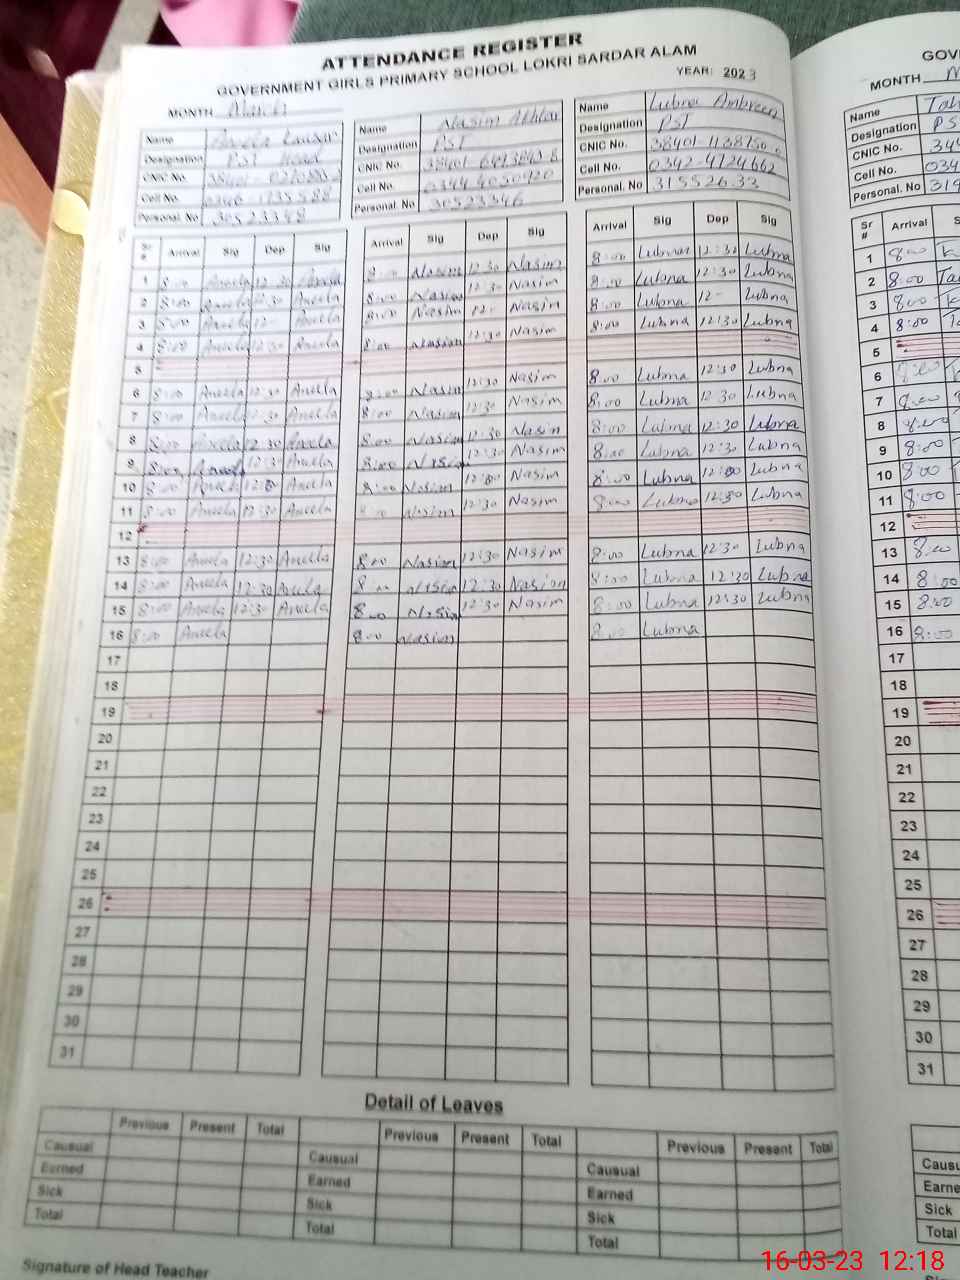 ATTENDANCE REGISTER
GOVERNMENT GIRLS PRIMARY SCHOOL LOKRI SARDAR ALAM
MONTH March YEAR: 2023
Name Aneela Kausar Name Nasim Akhtar Name Lubna Ambreen
Designation PST Head Designation PST Designation PST
CNIC No. CNIC No. CNIC No.
Cell No. Cell No. Cell No. 0342-4724662
Personal. No 30523348 Personal. No 30523346 Personal. No 31552632
Sr # Arrival Sig Dep Sig Arrival Sig Dep Sig Arrival Sig Dep Sig
1 8:00 Aneela 12:30 Aneela 8:00 Nasim 12:30 Nasim 8:00 Lubna 12:30 Lubna
2 8:00 Aneela 12:30 Aneela 8:00 Nasim 12:30 Nasim 8:00 Lubna 12:30 Lubna
3 8:00 Aneela 12- Aneela 8:00 Nasim 12- Nasim 8:00 Lubna 12- Lubna
4 8:00 Aneela 12:30 Aneela 8:00 Nasim 12:30 Nasim 8:00 Lubna 12:30 Lubna
5
6 8:00 Aneela 12:30 Aneela 8:00 Nasim 12:30 Nasim 8:00 Lubna 12:30 Lubna
7 8:00 Aneela 12:30 Aneela 8:00 Nasim 12:30 Nasim 8:00 Lubna 12:30 Lubna
8 8:00 Aneela 12:30 Aneela 8:00 Nasim 12:30 Nasim 8:00 Lubna 12:30 Lubna
9 8:00 Aneela 12:30 Aneela 8:00 Nasim 12:30 Nasim 8:00 Lubna 12:30 Lubna
10 8:00 Aneela Aneela 8:00 Nasim Nasim 8:00 Lubna Lubna
11 8:00 Aneela 12:30 Aneela 8:00 Nasim 12:30 Nasim 8:00 Lubna 12:30 Lubna
12
13 8:00 Aneela 12:30 Aneela 8:00 Nasim 12:30 Nasim 8:00 Lubna 12:30 Lubna
14 8:00 Aneela 12:30 Aneela 8:00 Nasim 12:30 Nasim 8:00 Lubna 12:30 Lubna
15 8:00 Aneela 12:30 Aneela 8:00 Nasim 12:30 Nasim 8:00 Lubna 12:30 Lubna
16 8:00 Aneela 8:00 Nasim 8:00 Lubna
17
18
19
20
21
22
23
24
25
26
27
28
29
30
31
Detail of Leaves
Previous Present Total Previous Present Total Previous Present Total
Causual Causual Causual
Earned Earned Earned
Sick Sick Sick
Total Total Total
Signature of Head Teacher
MONTH
Name
Designation PST
CNIC No.
Cell No.
Personal. No
Sr # Arrival
1 8:00
2 8:00
3 8:00
4 8:00
5
6 8:00
7 8:00
8 8:00
9 8:00
10 8:00
11 8:00
12
13 8:00
14 8:00
15 8:00
16 8:00
17
18
19
20
21
22
23
24
25
26
27
28
29
30
31
Earned
Sick
Total
16-03-23 12:18